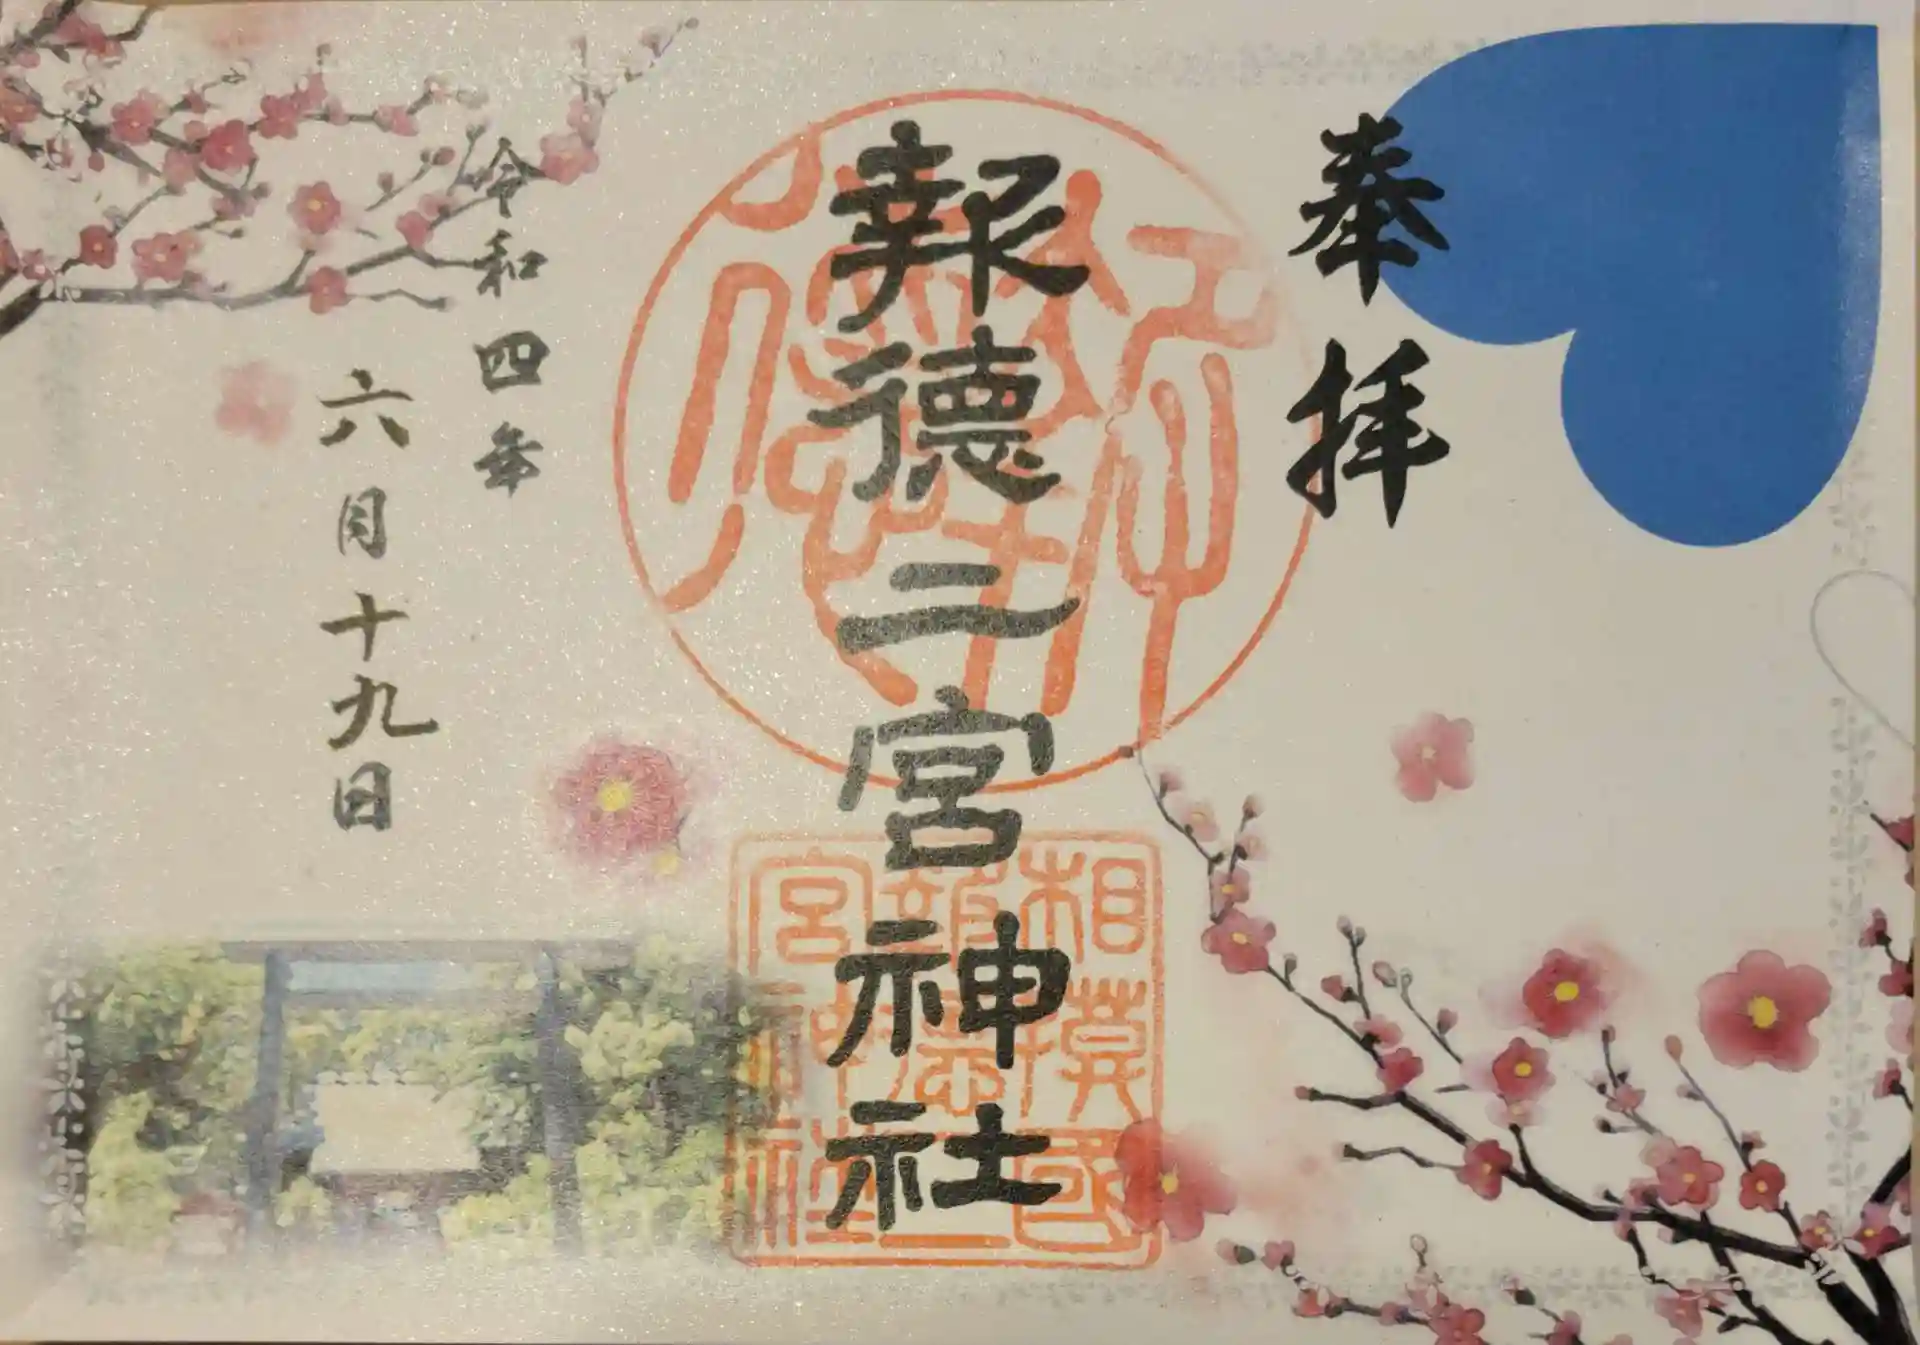 奉拝
報徳二宮神社
相模國
報徳二
宮神社
令和四年
六月十九日